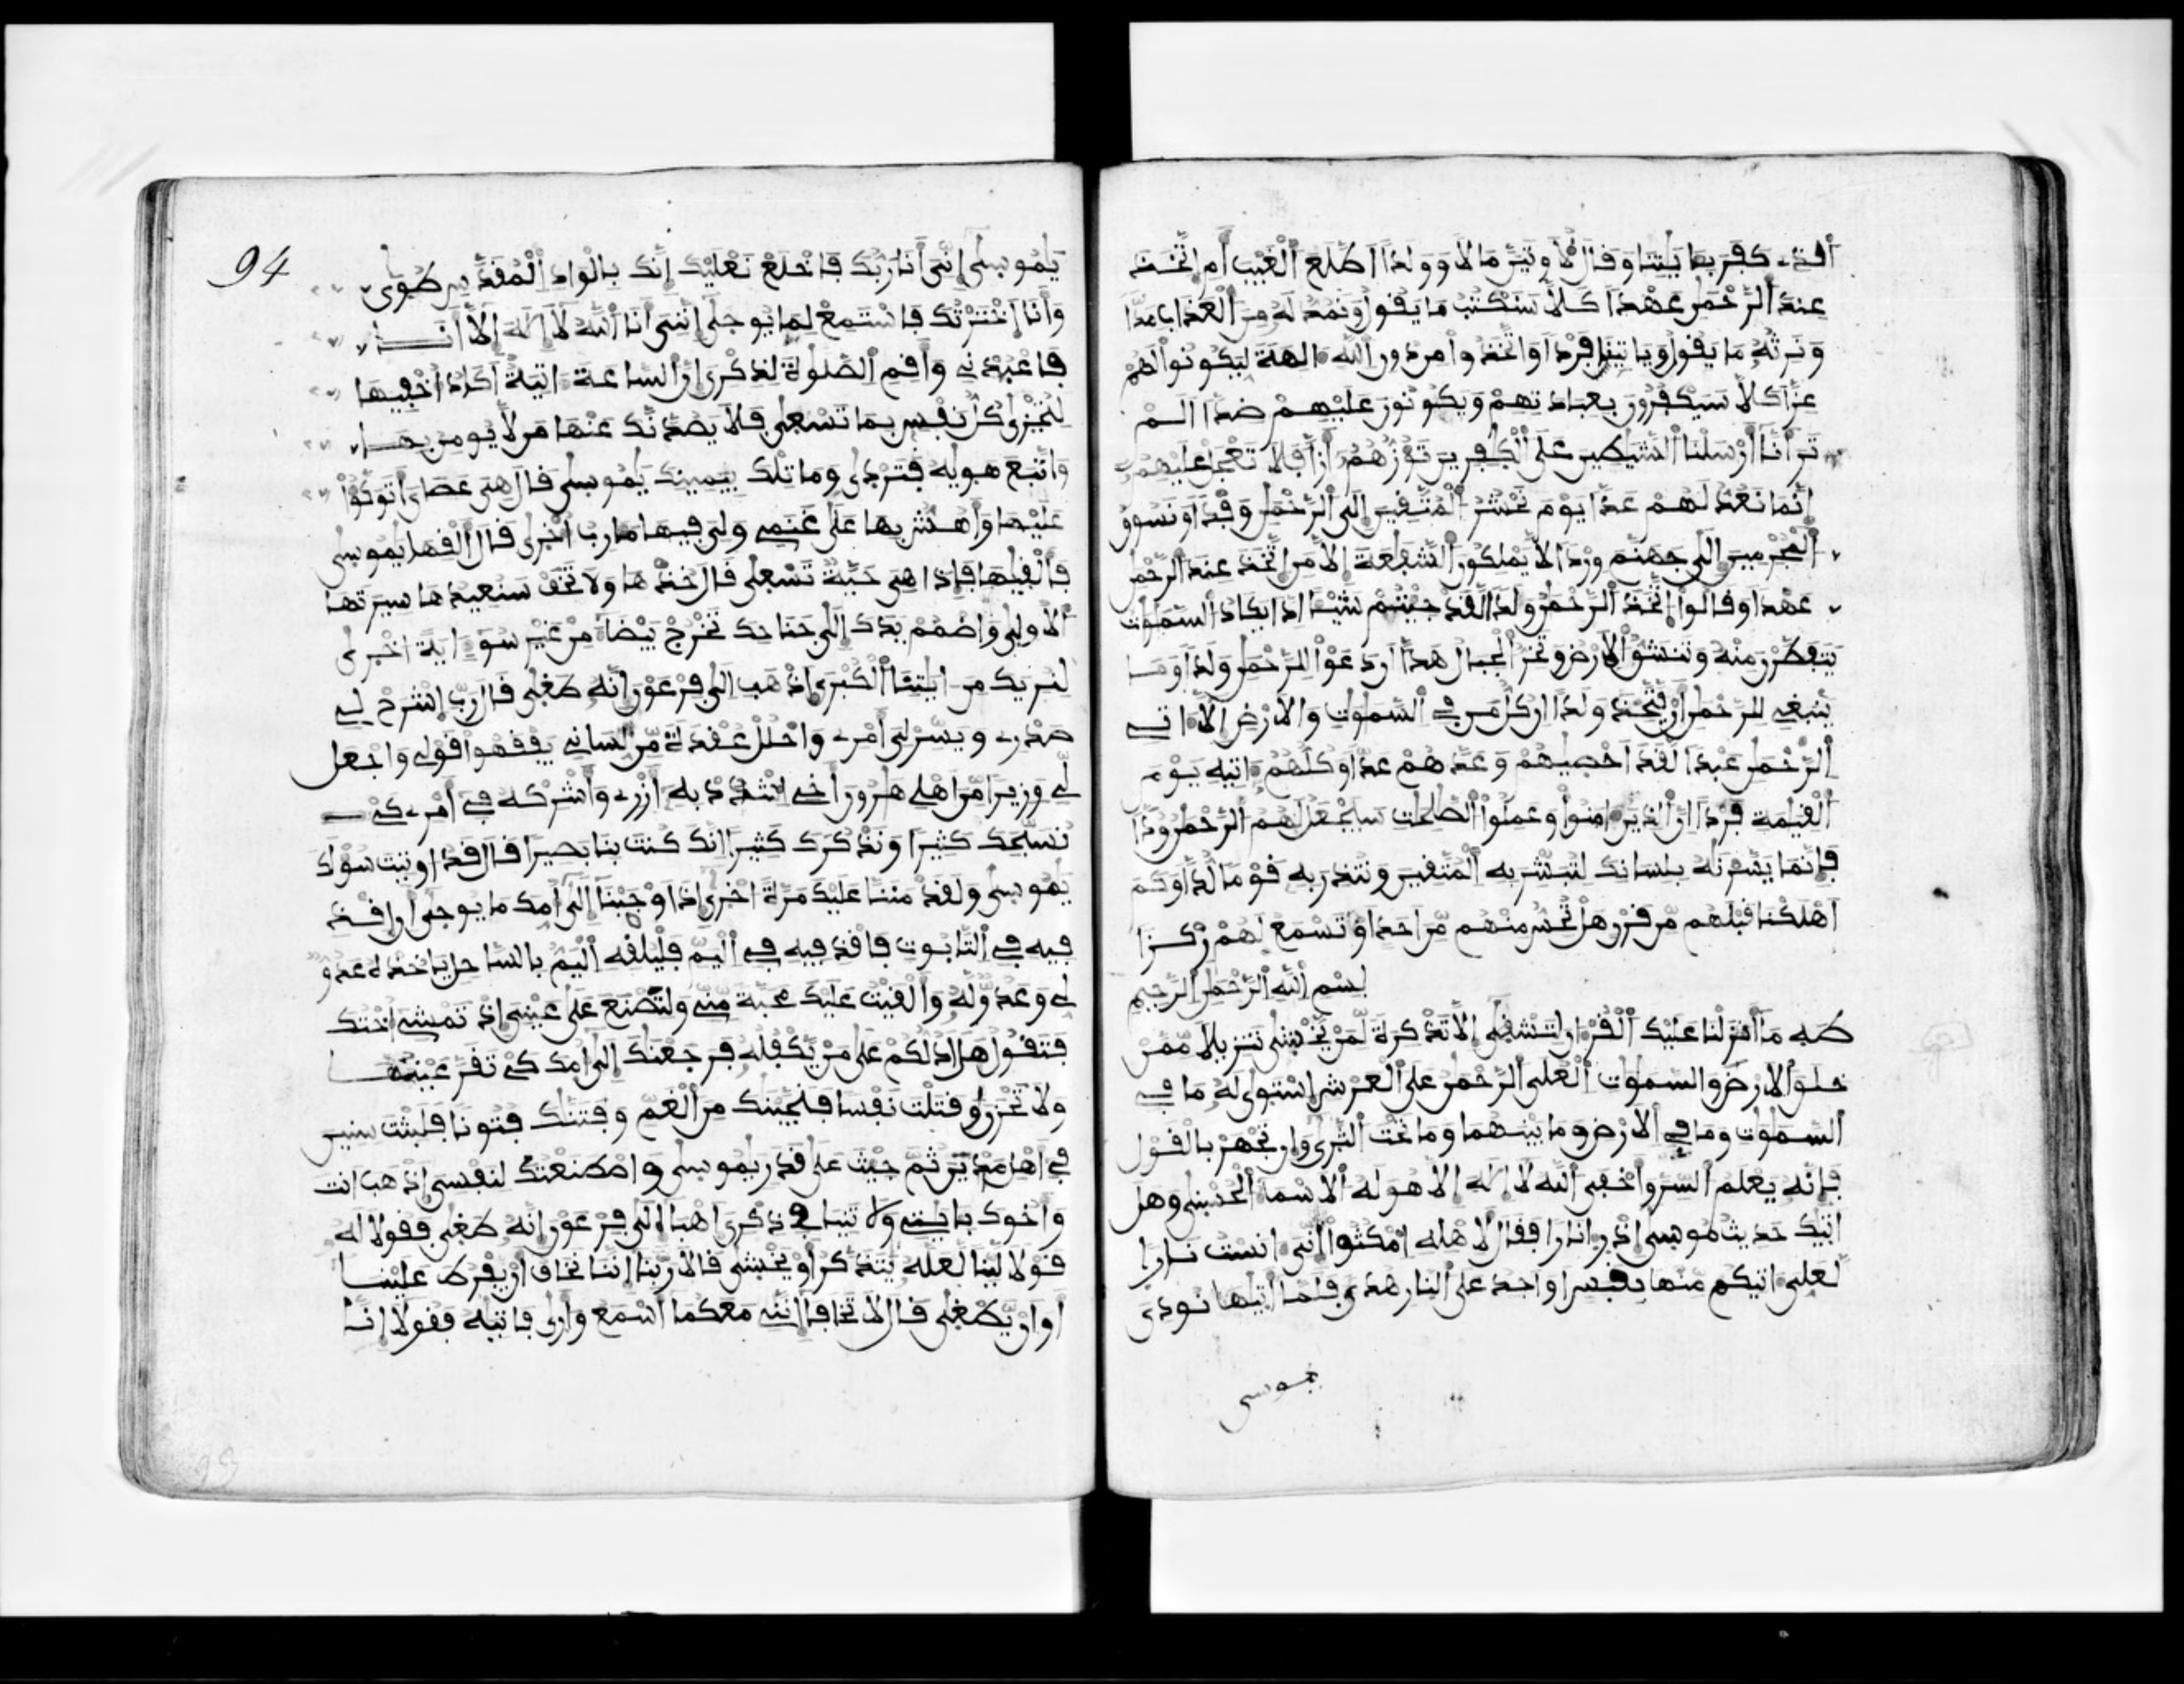 الذے كفر بـٔايتنا وقال لأوتين مالا وولدا اطلع الغيب أم اتخذ
عند الرحمن عهدا كلا سنكتب ما يقول ونمد له من العذاب مدا
ونرثه ما يقول وياتينا فردا واتخذوا من دون الله ءالهة ليكونوا لهم
عزا كلا سيكفرون بعبادتهم ويكونون عليهم ضدا الم
تر أنا أرسلنا الشيطين على الكفرين تؤزهم أزا فلا تعجل عليهم
إنما نعد لهم عدا يوم نحشر المتقين إلى الرحمن وفدا ونسوق
المجرمين إلى جهنم وردا لا يملكون الشفعة إلا من اتخذ عند الرحمن
عهدا وقالوا اتخذ الرحمن ولدا لقد جئتم شيئا ادا يكاد السموت
يتفطرن منه وتنشق الارض وتخر الجبال هدا أن دعوا للرحمن ولدا وما
ينبغے للرحمن ان يتخذ ولدا ان كل من فے السموت والارض الا ءاتے
الرحمن عبدا لقد احصيهم وعدهم عدا وكلهم ءاتيه يوم
القيمة فردا ان الذين ءامنوا وعملوا الصلحت سيجعل لهم الرحمن ودا
فإنما يسرنه بلسانك لتبشر به المتقين وتنذر به قوما لدا وكم
اهلكنا قبلهم من قرن هل تحس منهم من احد او تسمع لهم ركزا
بسم الله الرحمن الرحيم
طه ما أنزلنا عليك القرءان لتشقى إلا تذكرة لمن يخشى تنزيلا ممن
خلق الارض والسموت العلى الرحمن على العرش استوى له ما فے
السموت وما فے الارض وما بينهما وما تحت الثرى وان تجهر بالقول
فإنه يعلم السر وأخفى الله لا اله الا هو له الاسماء الحسنى وهل
اتيك حديث موسى اذ رءا نارا فقال لاهله امكثوا إنى ءانست نارا
لعلى ءاتيكم منها بقبس او اجد على النار هدى فلما اتيها نودى
يموسى
94
يموسى إنى أنا ربك فاخلع نعليك إنك بالواد المقدس طوى
وأنا اخترتك فاستمع لما يوحى إننى أنا الله لا اله إلا أنا
فاعبدنے وأقم الصلوة لذكرى ان الساعة ءاتية اكاد أخفيها
لتجزى كل نفس بما تسعى فلا يصدنك عنها من لا يومن بها
واتبع هويه فتردى وما تلك بيمينك يموسى قال هى عصاى أتوكؤا
عليها وأهش بها على غنمے ولى فيها مارب اخرى قال القها يموسى
فألقيها فإذا هى حية تسعى قال خذها ولا تخف سنعيدها سيرتها
الاولى واضمم يدك إلى جناحك تخرج بيضاء من غير سوء ءاية اخرى
لنريك من ءايتنا الكبرى اذهب الى فرعون إنه طغى قال رب اشرح لے
صدرے ويسر لى أمرے واحلل عقدة من لسانے يفقهوا قولے واجعل
لے وزيرا من اهلے هرون أخے اشدد به أزرے وأشركه فے أمرے كے
نسبحك كثيرا ونذكرك كثيرا انك كنت بنا بصيرا قال قد اوتيت سؤلك
يموسى ولقد مننا عليك مرة اخرى اذ اوحينا إلى أمك ما يوحى أن اقذ
فيه فے التابوت فاقذفيه فے اليم فليلقه اليم بالساحل ياخذه عدو
لے وعدو له وألقيت عليك محبة منے ولتصنع على عينى إذ تمشے اختك
فتقول هل ادلكم على من يكفله فرجعنك إلى امك كے تقر عينها
ولا تحزن وقتلت نفسا فنجينك من الغم وفتنك فتونا فلبثت سنين
فے أهل مدين ثم جئت على قدر يموسى واصطنعتك لنفسى اذهب انت
وأخوك بـٔايتے ولا تنيا فے ذكرى اذهبا إلى فرعون انه طغى فقولا له
قولا لينا لعله يتذكر أو يخشى قالا ربنا إننا نخاف أن يفرط علينا
أو ان يطغى قال لا تخافا اننے معكما اسمع وأرى فاتيه فقولا انا